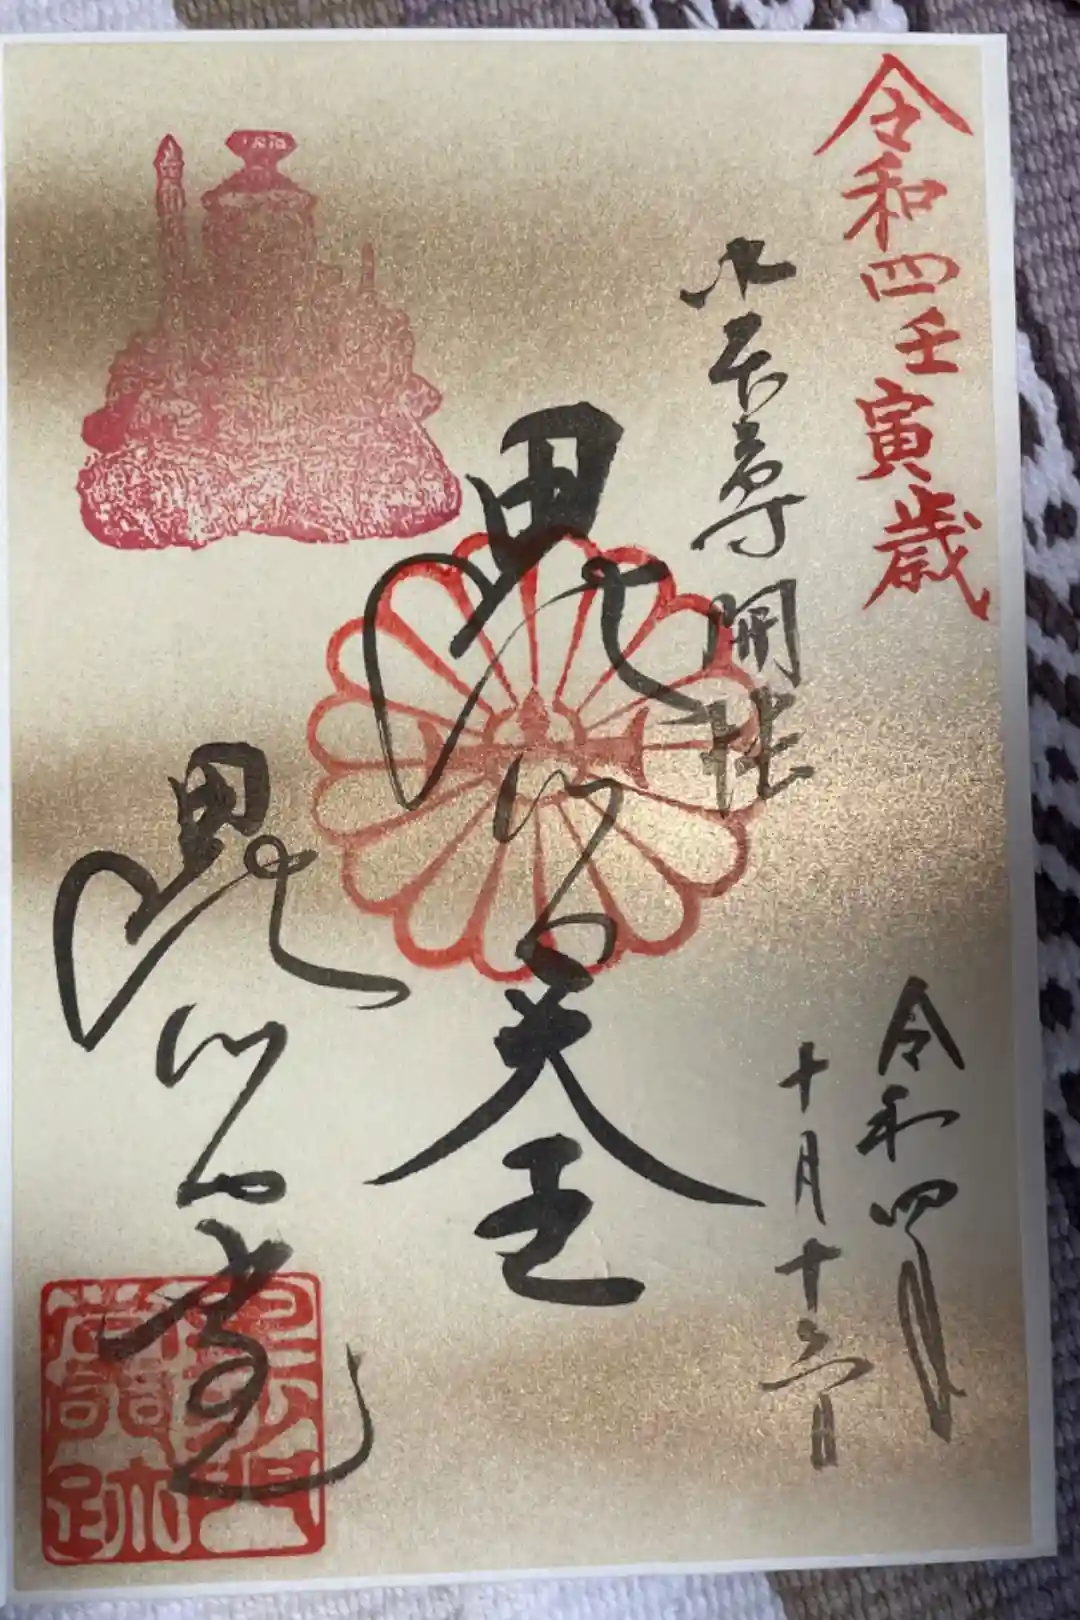 令和四壬寅歳
本尊開帳
毘沙門天王
毘沙門堂
令和四年
十月十六日